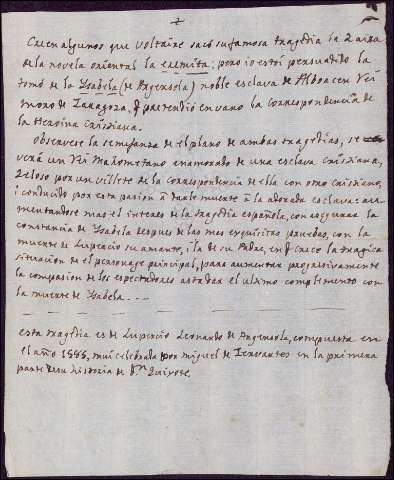 Creen algunos que Voltaire sacó su famosa tragedia la Zaira
de la novela oriental la eremita; pero io estoi persuadido la
tomó de la Ysabela (de Argensola) noble esclava de Alboacen Rei
moro de Zaragoza, q pretendió en vano la correspondencia de
la heroina cristiana.
Observese la semejanza de el plano de ambas tragedias, se
verá un Rei Mahometano enamorado de una esclava cristiana,
zeloso por un villete de la correspondencia de ella con otro cristiano,
i conducido por esta pasion á darle muerte á la adorada esclava: au
mentandose mas el interes de la tragedia española, con asegurar la
constancia de Ysabela despues de las mas exquisitas pruebas, con la
muerte de Lupercio su amante, i la de su Padre, en q crece la tragica
situacion de el personage principal, para aumentar progresivamente
la compasion de los espectadores hasta el ultimo complemento con
la muerte de Ysabela . - -
esta tragedia es de Lupercio Leonardo de Argensola, compuesta en
el año 1585, mui celebrada por Miguel de Cervantes en la primera
parte de su historia de Dn Quixote.